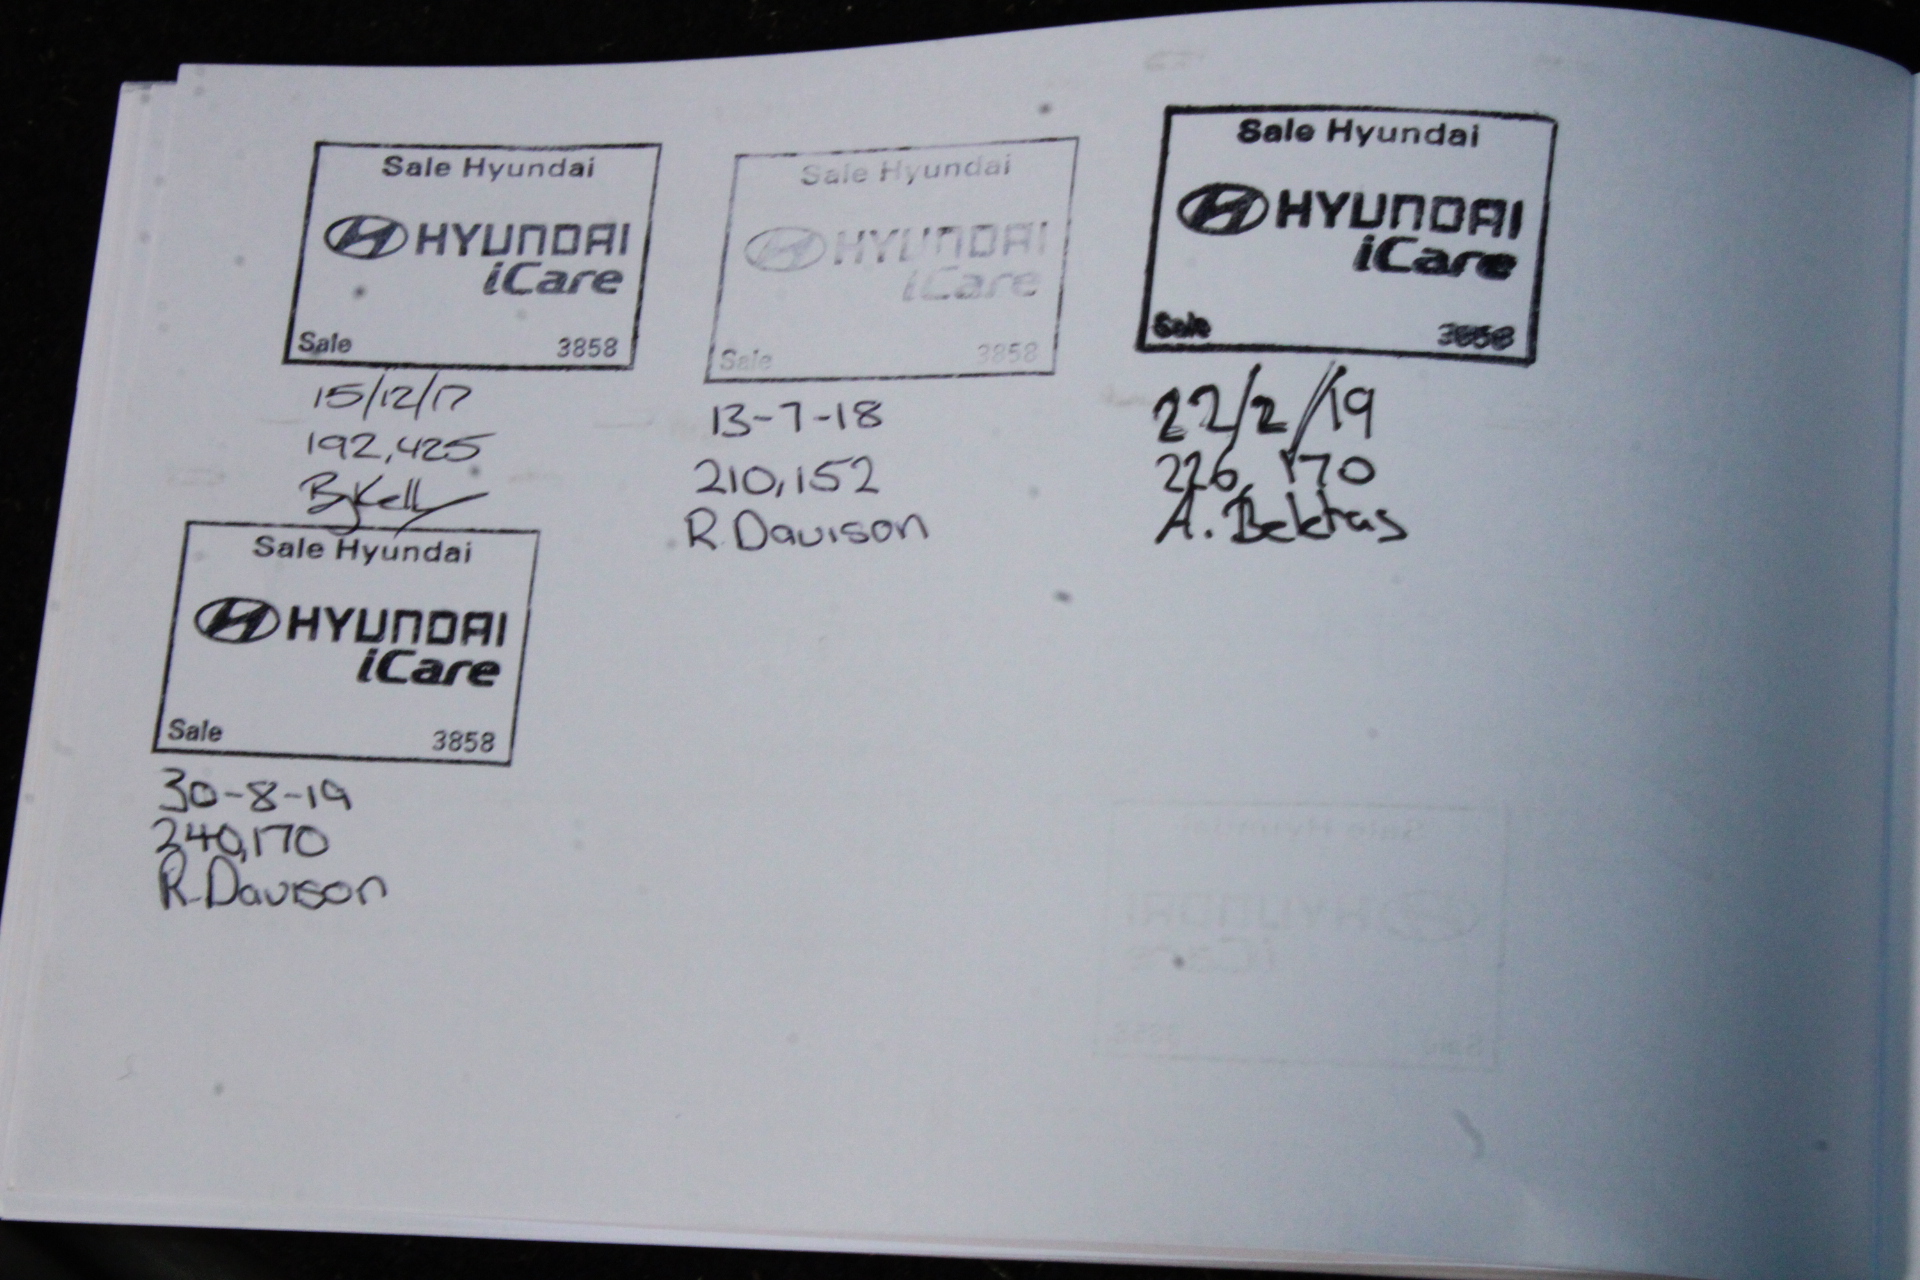 Sale Hyundai
HYUNDAI
iCare
Sale 3858
15/12/17
192,425
BjKelly
Sale Hyundai
HYUNDAI
iCare
Sale 3858
13-7-18
210,152
R. Davison
Sale Hyundai
HYUNDAI
iCare
Sale 3858
22/2/19
226,170
A. Bektas
Sale Hyundai
HYUNDAI
iCare
Sale 3858
30-8-19
240,170
R. Davison
Sale Hyundai
HYUNDAI
iCare
Sale 3858